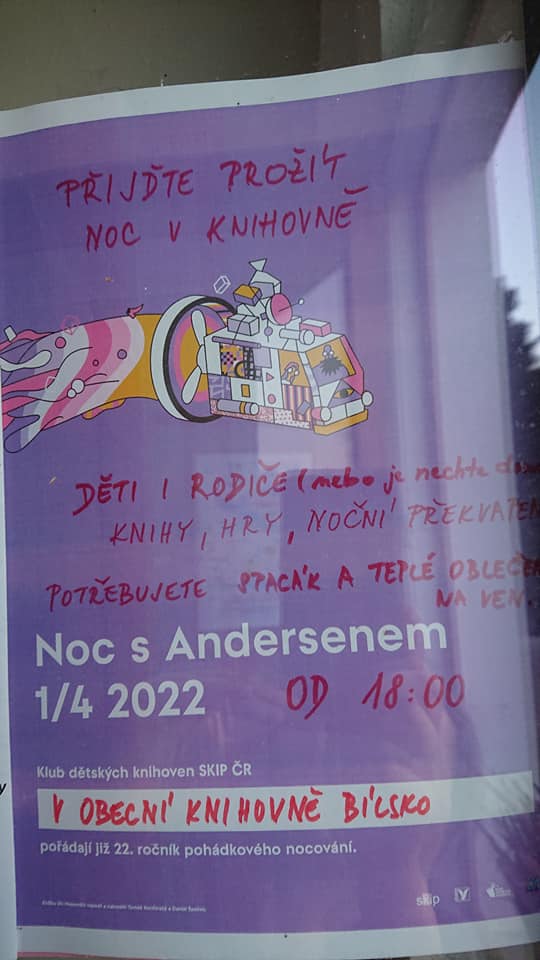 PŘIJĎTE PROŽÍT
NOC V KNIHOVNĚ
DĚTI I RODIČE (nebo je nechte
KNIHY, HRY, NOČNÍ
POTŘEBUJETE SPACÁK A TEPLÉ
NA VEN.
Noc s Andersenem
1/4 2022 OD 18:00
Klub dětských knihoven SKIP ČR
V OBECNÍ KNIHOVNĚ BÍLSKO
pořádají již 22. ročník pohádkového nocování.
skip